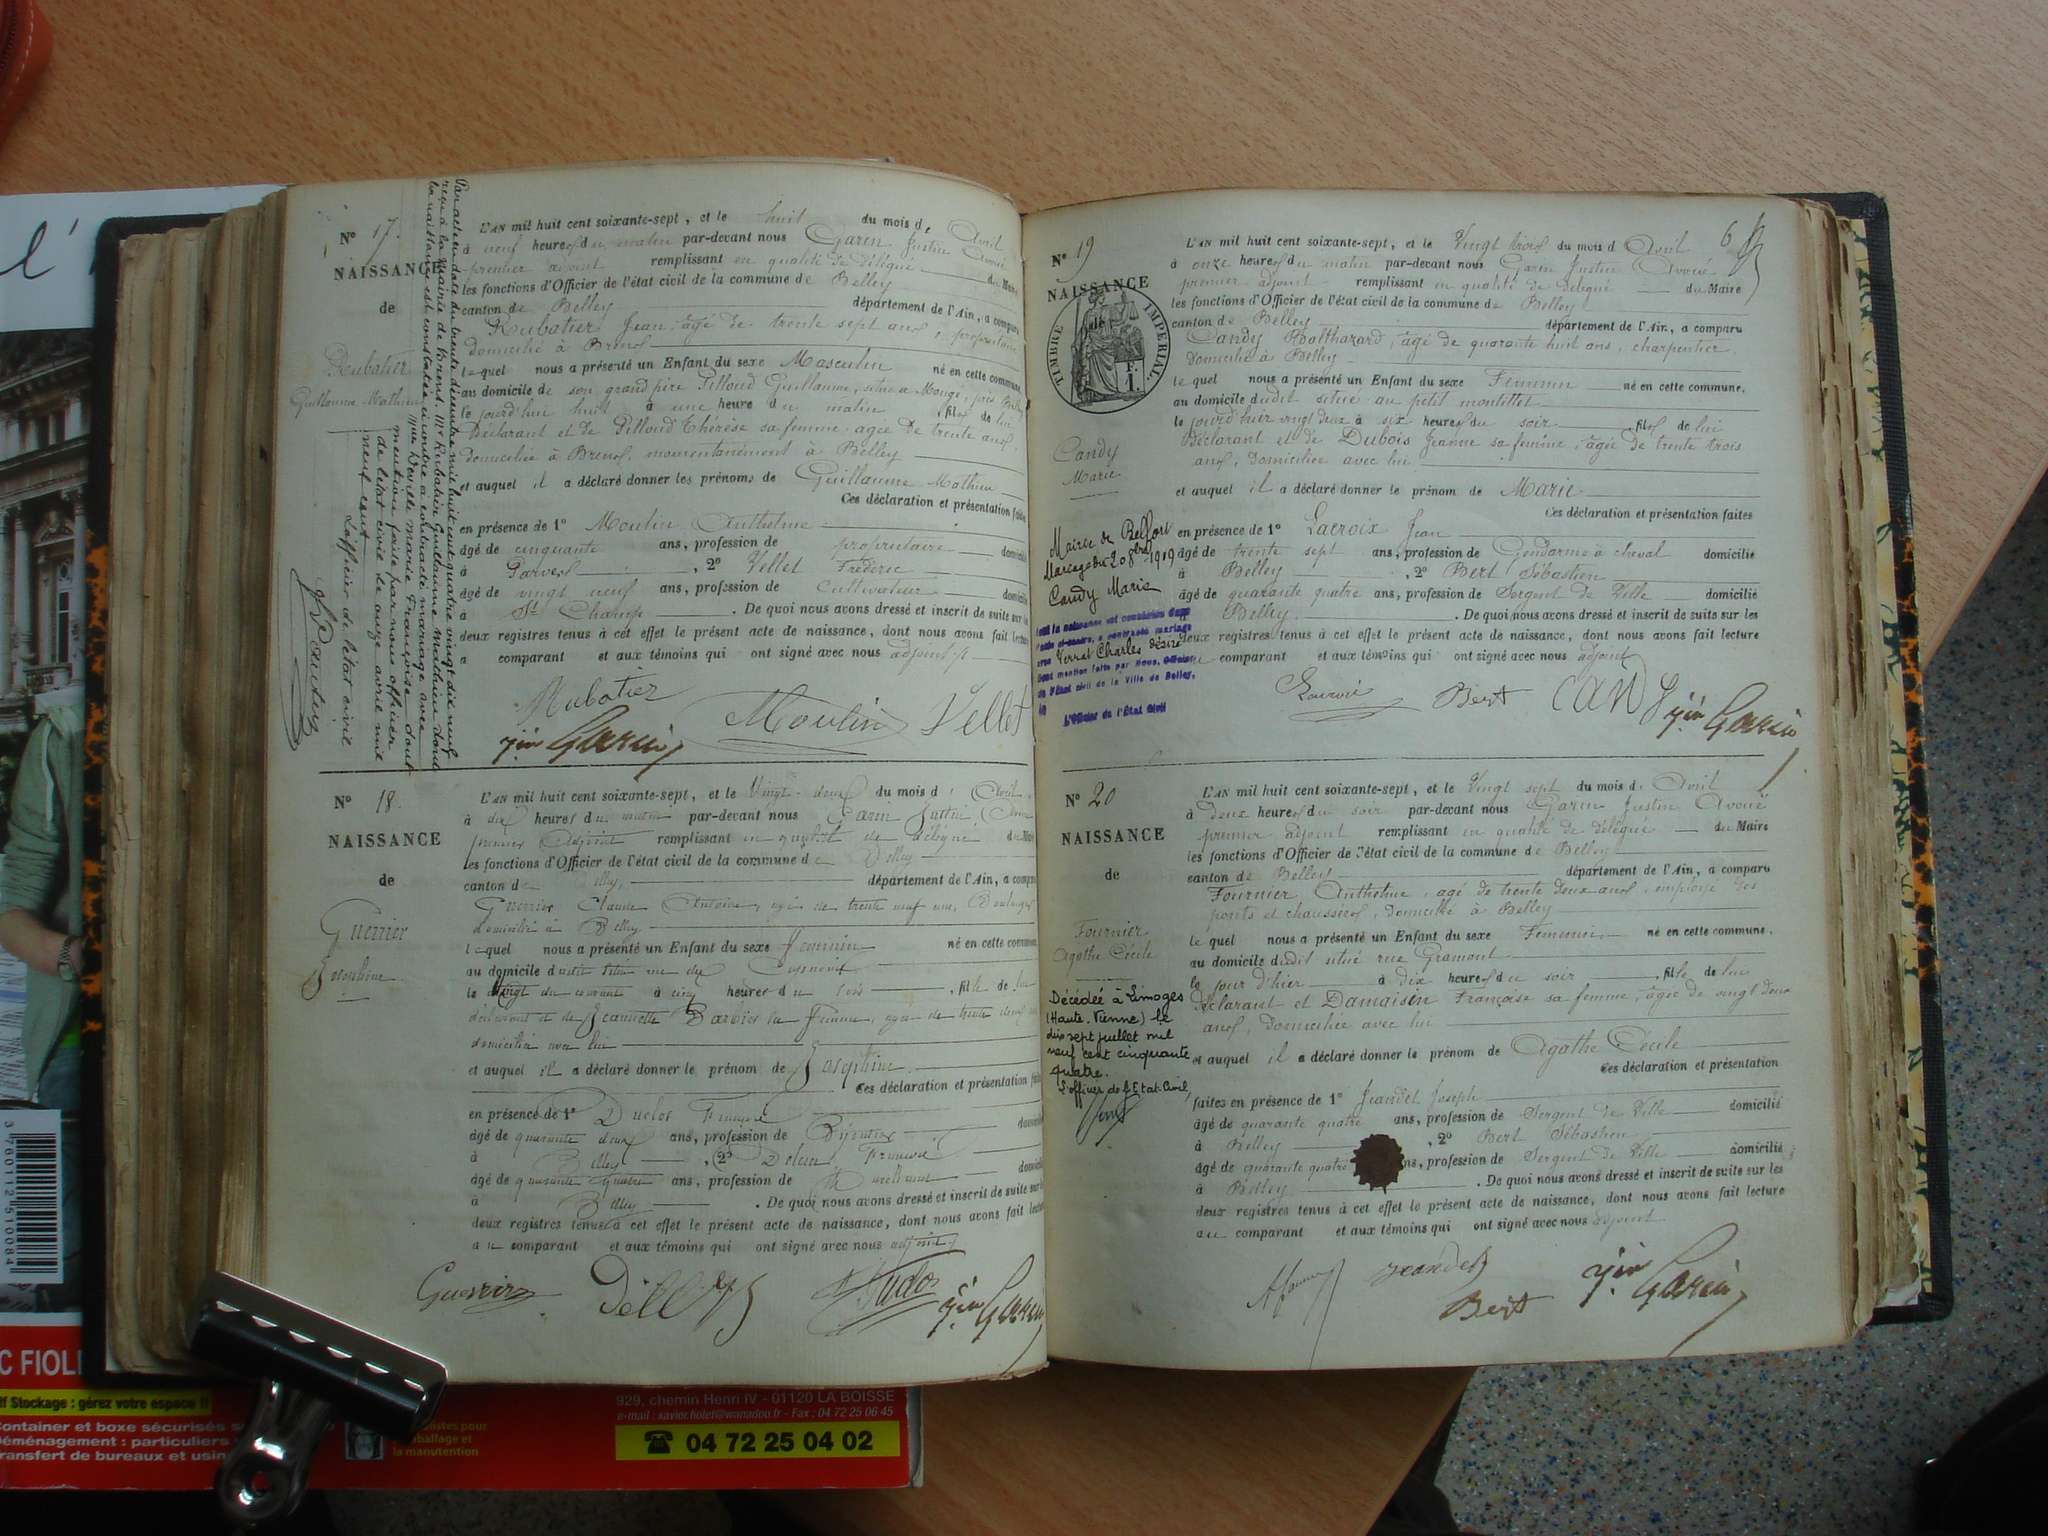 Nº 17.
NAISSANCE
de
Rubatier
Guillaume Mathieu
L'AN mil huit cent soixante-sept, et le huit du mois de Avril
à neuf heures du matin par-devant nous Garin Justin Avoué
premier adjoint remplissant en qualité de délégué du Maire
les fonctions d'Officier de l'état civil de la commune de Belley
canton de Belley département de l'Ain, a comparu
Rubatier Jean, âgé de trente sept ans, propriétaire
domicilié à Brens
lequel nous a présenté un Enfant du sexe Masculin né en cette commune,
au domicile de son grand père Pilloud Guillaume, situé à
le jourd'hui huit à une heure du matin, fils de lui
Déclarant et de Pilloud Thérèse sa femme, agée de trente ans,
domiciliée à Brens, momentanément à Belley
et auquel il a déclaré donner les prénoms de Guillaume Mathieu
Ces déclaration et présentation faites
en présence de 1º Moulin Anthelme
âgé de cinquante ans, profession de propriétaire domicilié
à Parves, 2º Vellet Frédéric
âgé de vingt neuf ans, profession de Cultivateur domicilié
à St Champ. De quoi nous avons dressé et inscrit de suite sur les
deux registres tenus à cet effet le présent acte de naissance, dont nous avons fait lecture
a comparant et aux témoins qui ont signé avec nous adjoint
Rubatier Moulin Vellet
Jin Garin
Par acte en date du trente décembre mil huit cent quatre vingt dix neuf
reçu à la Mairie de Brens, Mr Rubatier Guillaume Mathieu dont
la naissance est constatée ci contre a contracté mariage avec
Mlle Deville Marie Françoise dont
mention faite par nous officier
de l'état civil le onze avril mil
neuf cent
L'officier de l'état civil
Nº 18.
NAISSANCE
de
Guerrier
Josephine
L'AN mil huit cent soixante-sept, et le Vingt-deux du mois d' Avril
à dix heures du matin par-devant nous Garin Justin Avoué
premier Adjoint remplissant en qualité de délégué du Maire
les fonctions d'Officier de l'état civil de la commune de Belley
canton de Belley, département de l'Ain, a comparu
Guerrier Claude Antoine, agé de trente neuf ans, Boulanger
domicilié à Belley
lequel nous a présenté un Enfant du sexe Feminin né en cette commune,
au domicile dudit situé rue des
le vingt du courant à cinq heures du soir, fille de lui
déclarant et de Jeannette Barbier sa femme, agée de trente deux ans
domiciliée avec lui
et auquel il a déclaré donner le prénom de Josephine
Ces déclaration et présentation faites
en présence de 1º Duclos François
âgé de quarante deux ans, profession de Bijoutier domicilié
à Belley, 2º François
âgé de quarante quatre ans, profession de domicilié
à Belley. De quoi nous avons dressé et inscrit de suite sur les
deux registres tenus à cet effet le présent acte de naissance, dont nous avons fait lecture
au comparant et aux témoins qui ont signé avec nous adjoint
Guerrier
Jin Garin
6
Nº 19
NAISSANCE
de
TIMBRE IMPERIAL.
1 F.
Candy
Marie
L'AN mil huit cent soixante-sept, et le Vingt trois du mois d Avril
à onze heures du matin par-devant nous Garin Justin Avoué
premier adjoint remplissant en qualité de délégué du Maire
les fonctions d'Officier de l'état civil de la commune de Belley
canton de Belley département de l'Ain, a comparu
Candy Balthazard, âgé de quarante huit ans, charpentier,
domicilié à Belley
lequel nous a présenté un Enfant du sexe Féminin né en cette commune.
au domicile dudit situé au petit montillet
le jourd'hier vingt deux à six heures du soir, fille de lui
Déclarant et de Dubois Jeanne sa femme, âgée de trente trois
ans, domiciliée avec lui
et auquel il a déclaré donner le prénom de Marie
Ces déclaration et présentation faites
en présence de 1º Lacroix Jean
âgé de trente sept ans, profession de Gendarme à cheval domicilié
à Belley, 2º Bert Sébastien
âgé de quarante quatre ans, profession de Sergent de Ville domicilié
à Belley. De quoi nous avons dressé et inscrit de suite sur les
deux registres tenus à cet effet le présent acte de naissance, dont nous avons fait lecture
comparant et aux témoins qui ont signé avec nous adjoint
Lacroix Bert CANDY Jin Garin
Mairie de Belfort
Mariage du 20 8bre 1919
Candy Marie
dont la naissance est constatée dans
l'acte ci-contre, a contracté mariage
avec Verrat Charles Désiré
Dont mention faite par Nous, Officier
de l'État civil de la Ville de Belley,
le
L'Officier de l'État Civil
Nº 20
NAISSANCE
de
Fournier
Agathe Cécile
L'AN mil huit cent soixante-sept, et le Vingt sept du mois d' Avril
à deux heures du soir par-devant nous Garin Justin Avoué
premier adjoint remplissant en qualité de délégué du Maire
les fonctions d'Officier de l'état civil de la commune de Belley
canton de Belley département de l'Ain, a comparu
Fournier Anthelme, agé de trente deux ans, employé des
ponts et chaussées, domicilié à Belley
lequel nous a présenté un Enfant du sexe Feminin né en cette commune.
au domicile dudit situé rue Gramont
le jour d'hier à dix heures du soir, fille de lui
déclarant et Damaisin Françoise sa femme, âgée de vingt deux
ans, domiciliée avec lui
et auquel il a déclaré donner le prénom de Agathe Cécile
Ces déclaration et présentation
faites en présence de 1º Jeandet Joseph
âgé de quarante quatre ans, profession de Sergent de Ville domicilié
à Belley, 2º Bert Sébastien
âgé de quarante quatre ans, profession de Sergent de Ville domicilié
à Belley. De quoi nous avons dressé et inscrit de suite sur les
deux registres tenus à cet effet le présent acte de naissance, dont nous avons fait lecture
au comparant et aux témoins qui ont signé avec nous adjoint
Jeandet
Bert
Jin Garin
Décédée à Limoges
(Haute-Vienne) le
dix sept juillet mil
neuf cent cinquante
quatre.
L'officier de l'Etat-Civil,
3 760112 510084
C FIOL
lf Stockage : gérez votre espace !!
Container et boxe sécurisés
Déménagement : particuliers
ransfert de bureaux et usin
la manutention
929, chemin Henri IV - 01120 LA BOISSE
e-mail : xavier.fiolet@wanadoo.fr - Fax : 04 72 25 06 45
04 72 25 04 02